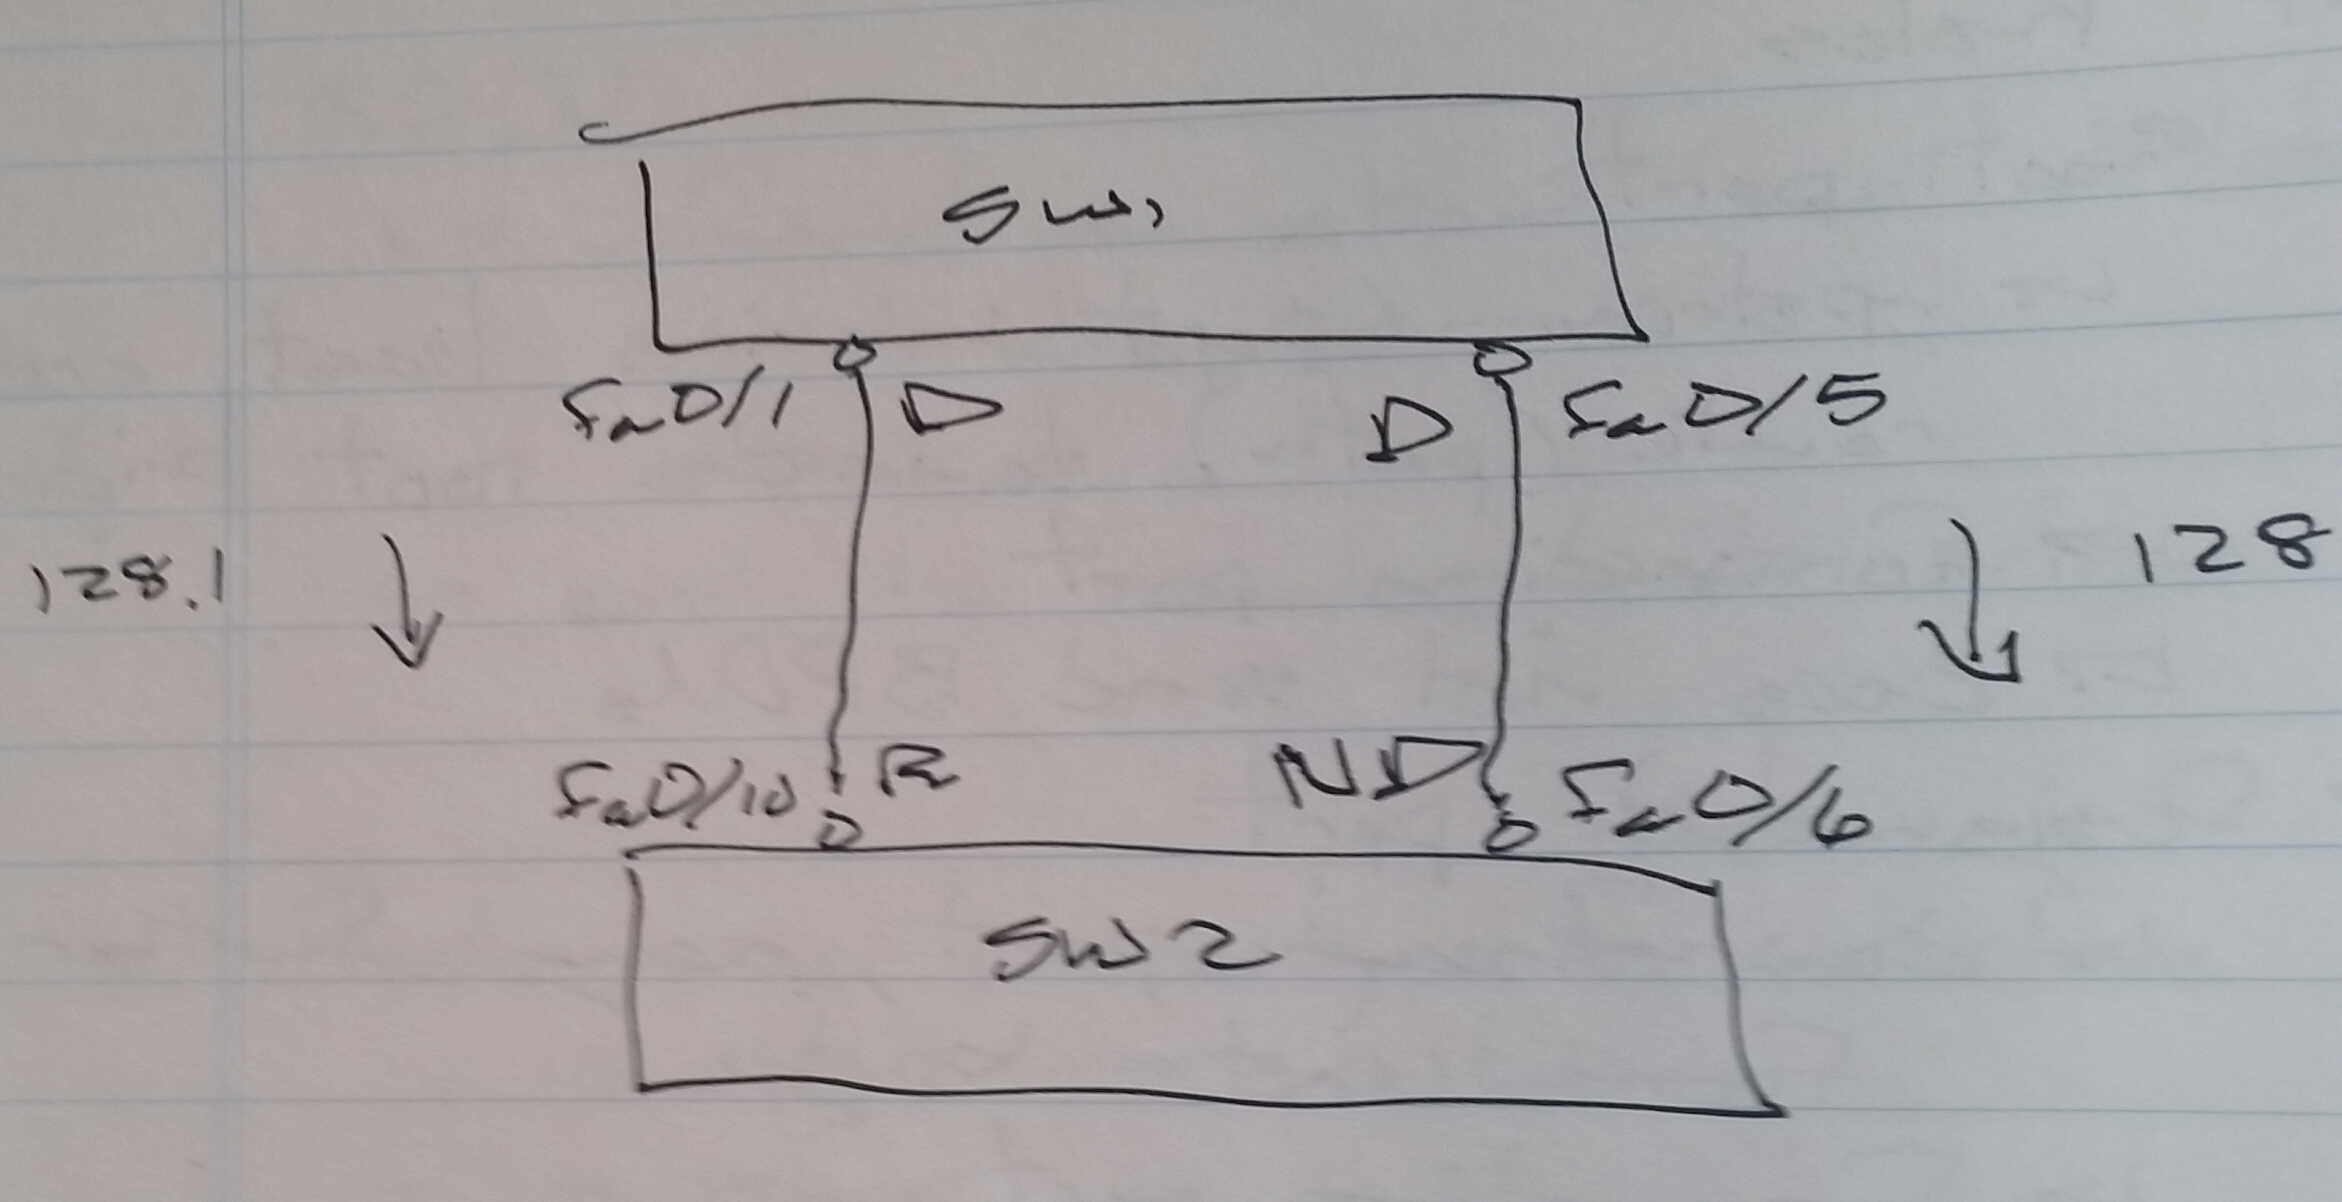 SW1
Fa0/1 D D Fa0/5
128.1 128
Fa0/10 R ND Fa0/6
SW2